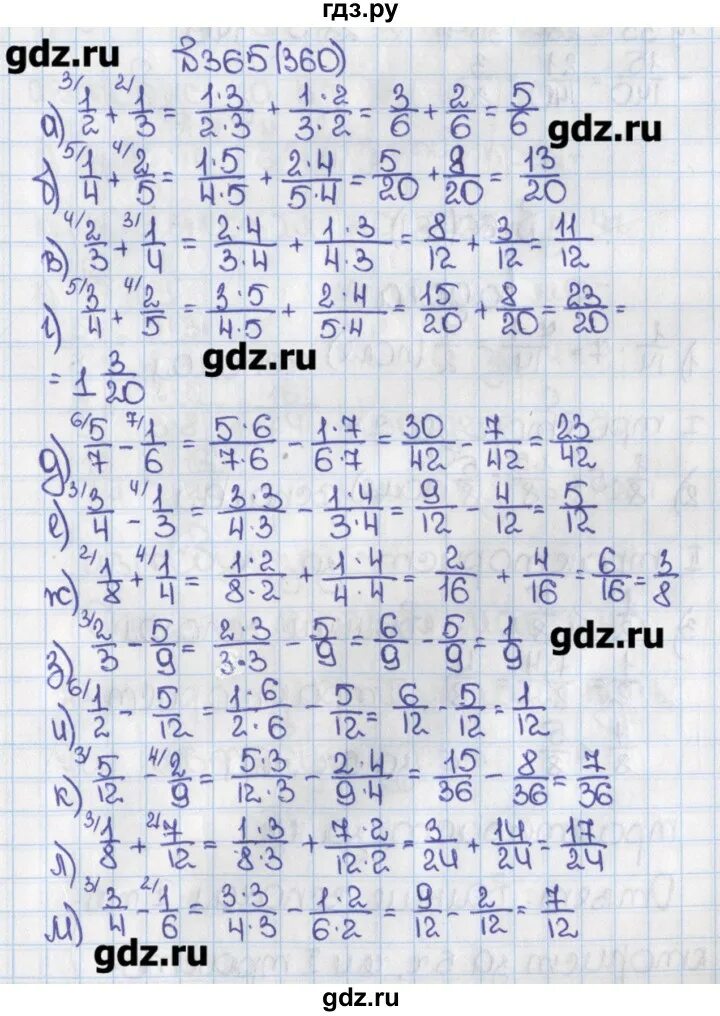 гдз.ру
gdz.ru №365(360)
а) 3/ 1/2 + 2/ 1/3 = 1·3/2·3 + 1·2/3·2 = 3/6 + 2/6 = 5/6
gdz.ru
б) 5/ 1/4 + 4/ 2/5 = 1·5/4·5 + 2·4/5·4 = 5/20 + 8/20 = 13/20
в) 4/ 2/3 + 3/ 1/4 = 2·4/3·4 + 1·3/4·3 = 8/12 + 3/12 = 11/12
г) 5/ 3/4 + 4/ 2/5 = 3·5/4·5 + 2·4/5·4 = 15/20 + 8/20 = 23/20 =
= 1 3/20
gdz.ru
д) 6/ 5/7 - 7/ 1/6 = 5·6/7·6 - 1·7/6·7 = 30/42 - 7/42 = 23/42
е) 3/ 3/4 - 4/ 1/3 = 3·3/4·3 - 1·4/3·4 = 9/12 - 4/12 = 5/12
ж) 2/ 1/8 + 4/ 1/4 = 1·2/8·2 + 1·4/4·4 = 2/16 + 4/16 = 6/16 = 3/8
з) 3/ 2/3 - 5/9 = 2·3/3·3 - 5/9 = 6/9 - 5/9 = 1/9
gdz.ru
и) 6/ 1/2 - 5/12 = 1·6/2·6 - 5/12 = 6/12 - 5/12 = 1/12
к) 3/ 5/12 - 4/ 2/9 = 5·3/12·3 - 2·4/9·4 = 15/36 - 8/36 = 7/36
л) 3/ 1/8 + 2/ 7/12 = 1·3/8·3 + 7·2/12·2 = 3/24 + 14/24 = 17/24
м) 3/ 3/4 - 2/ 1/6 = 3·3/4·3 - 1·2/6·2 = 9/12 - 2/12 = 7/12
gdz.ru
gdz.ru